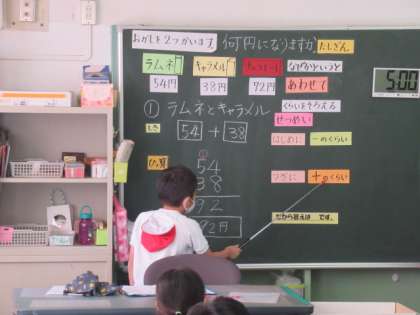 おかしを2つかいます。何円になりますか
たしざん
ラムネ
キャラメル
なぜかというと
54円
38円
72円
あわせて
5:00
くらいをそろえる
① ラムネとキャラメル
せつめい
しき
54 + 38
はじめに
一のくらい
ひっ算
54
38
92
つぎに
十のくらい
92円
だから答えは
です。